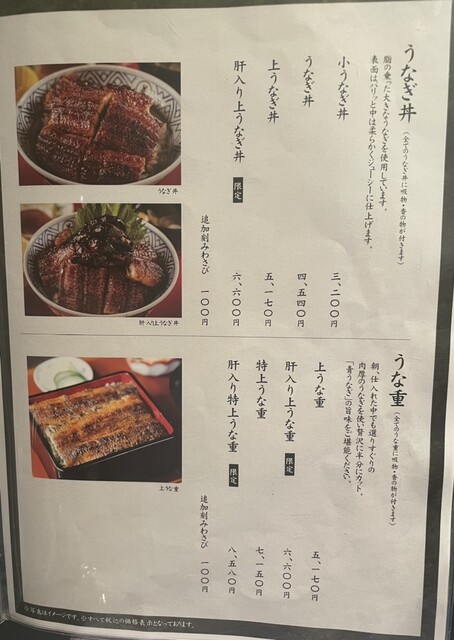 うなぎ丼（全てのうなぎ丼に吸物・香の物が付きます）
脂の乗った大きなうなぎを使用しています。
表面はパリッと中は柔らかくジューシーに仕上げます。
小うなぎ丼 三、二〇〇円
うなぎ丼 四、五四〇円
上うなぎ丼 五、一七〇円
肝入り上うなぎ丼 限定 六、六〇〇円
追加刻みわさび 一〇〇円
うなぎ丼
肝入り上うなぎ丼
うな重（全てのうな重に吸物・香の物が付きます）
朝、仕入れた中でも選りすぐりの
肉厚のうなぎを使い贅沢に半分にカット。
「青うなぎ」の旨味をご堪能ください。
上うな重 五、一七〇円
肝入り上うな重 限定 六、六〇〇円
特上うな重 七、一五〇円
肝入り特上うな重 限定 八、五八〇円
追加刻みわさび 一〇〇円
上うな重
※写真はイメージです。※すべて税込の価格表示となっております。